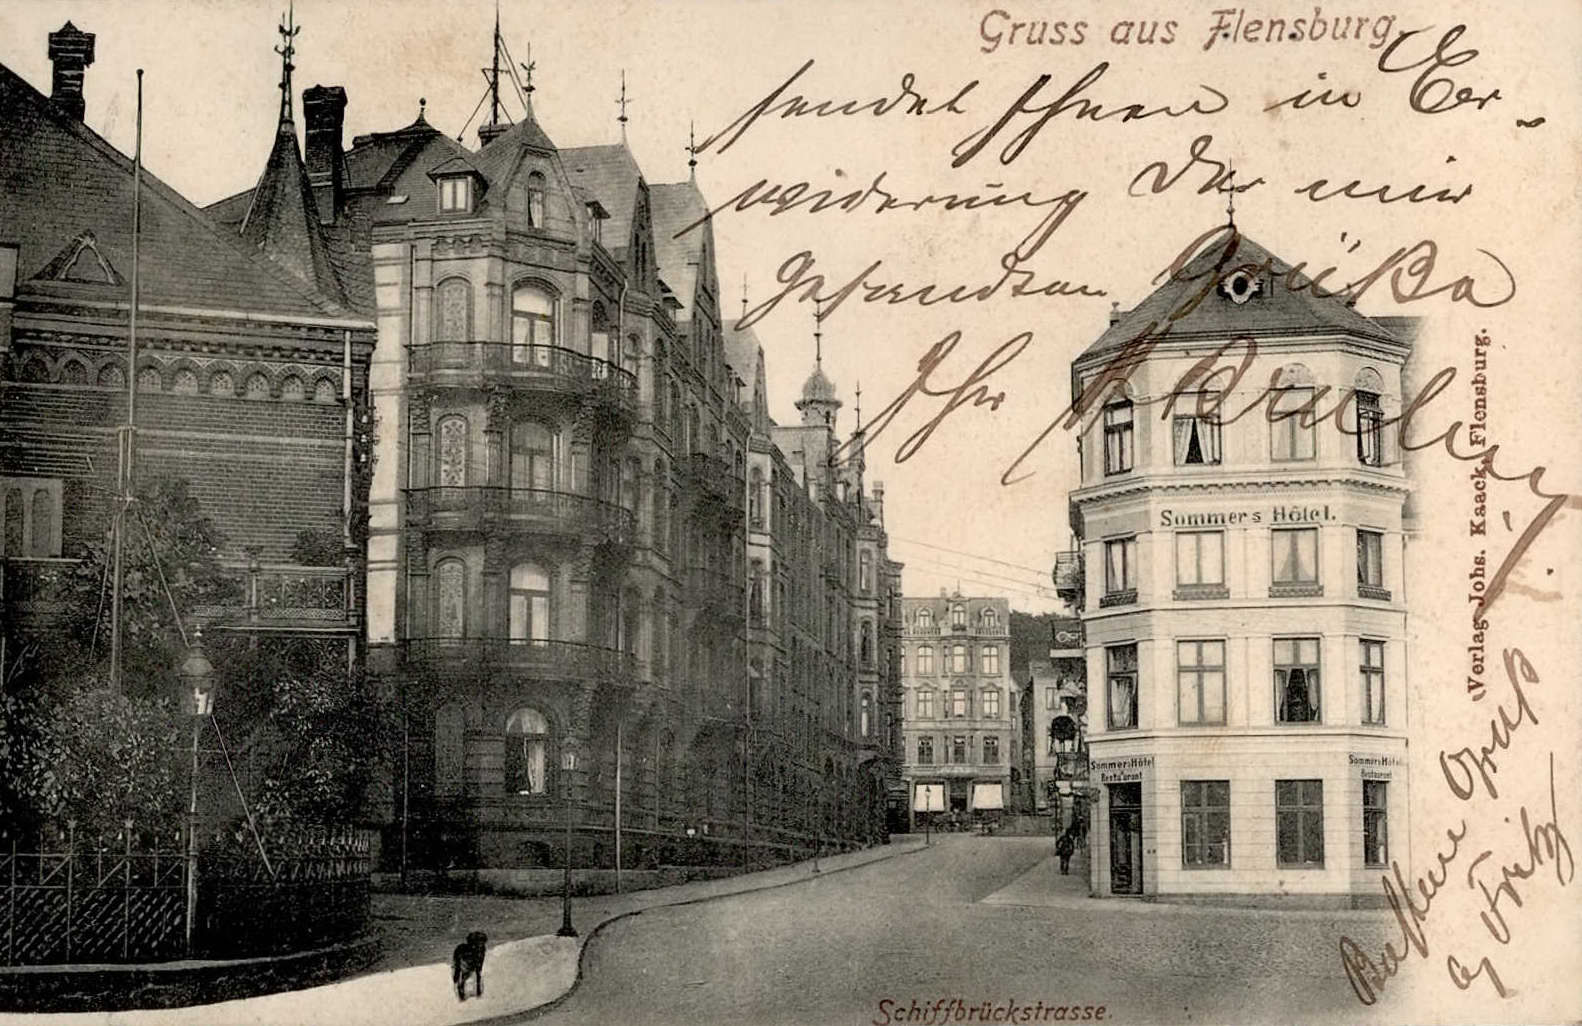 Gruss aus Flensburg.
sendet Ihnen in Er-
widerung der mir
gesandten Grüße
Ihr
Sommers Hôtel.
Sommers Hôtel
Restaurant
Sommers Hôtel
Restaurant
Verlag Johs. Kaack, Flensburg.
Besten Gruß
Fritz
Schiffbrückstrasse.